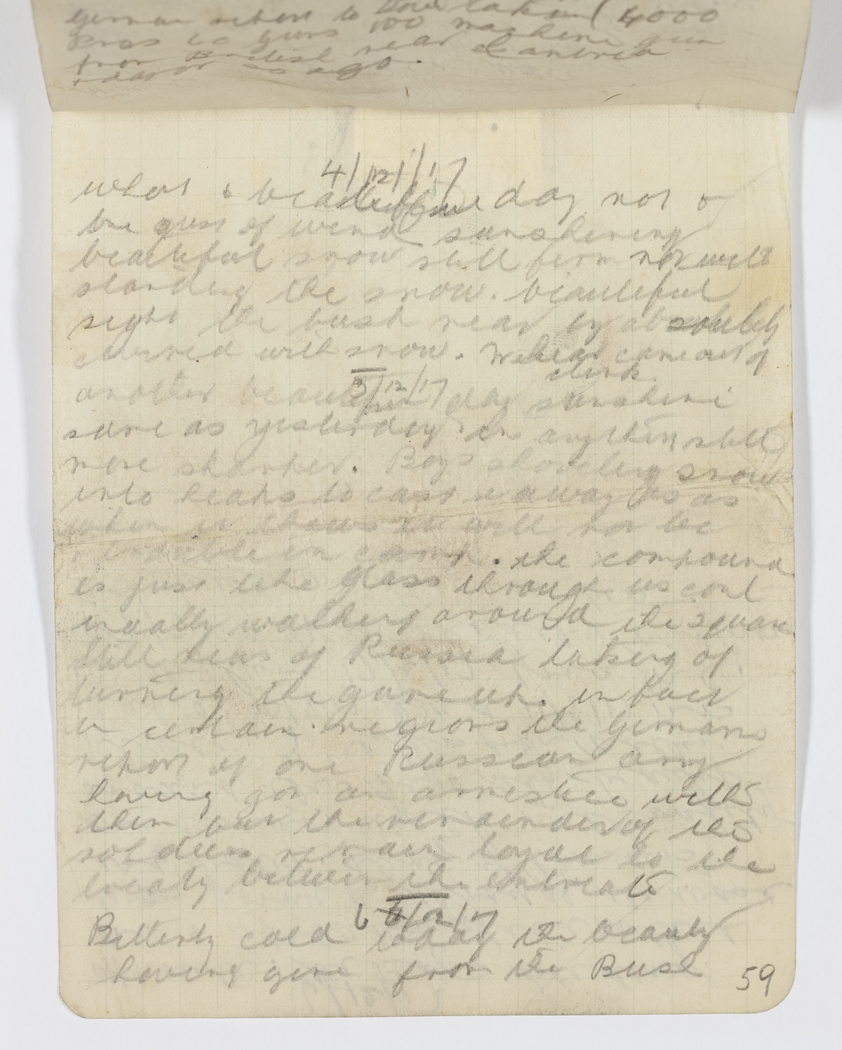 german report to have taken 4000
100 machine gun
from British near Cambrai
4/12/17
what a beautiful day not a
bit of wind sunshining
beautiful snow still firm not with
standing the snow. beautiful
sight the bush near by absolutely
covered with snow. came out of
clink
5/12/17
another beautiful day sunshine
same as yesterday if anything still
more sharper. Boys shoveling snow
into heaps to cast it away as
when it thaws it will not be
in camp. the compound
is just like glass through us
walking around the square
Still news of Russia talking of
turning the game up. in fact
in certain regions the Germans
report of one Russian army
having got an armestice with
them but the remainder of the
soldiers remain loyal to the
treaty between the
6/12/17
Bitterly cold today the beauty
having gone from the Bush
59